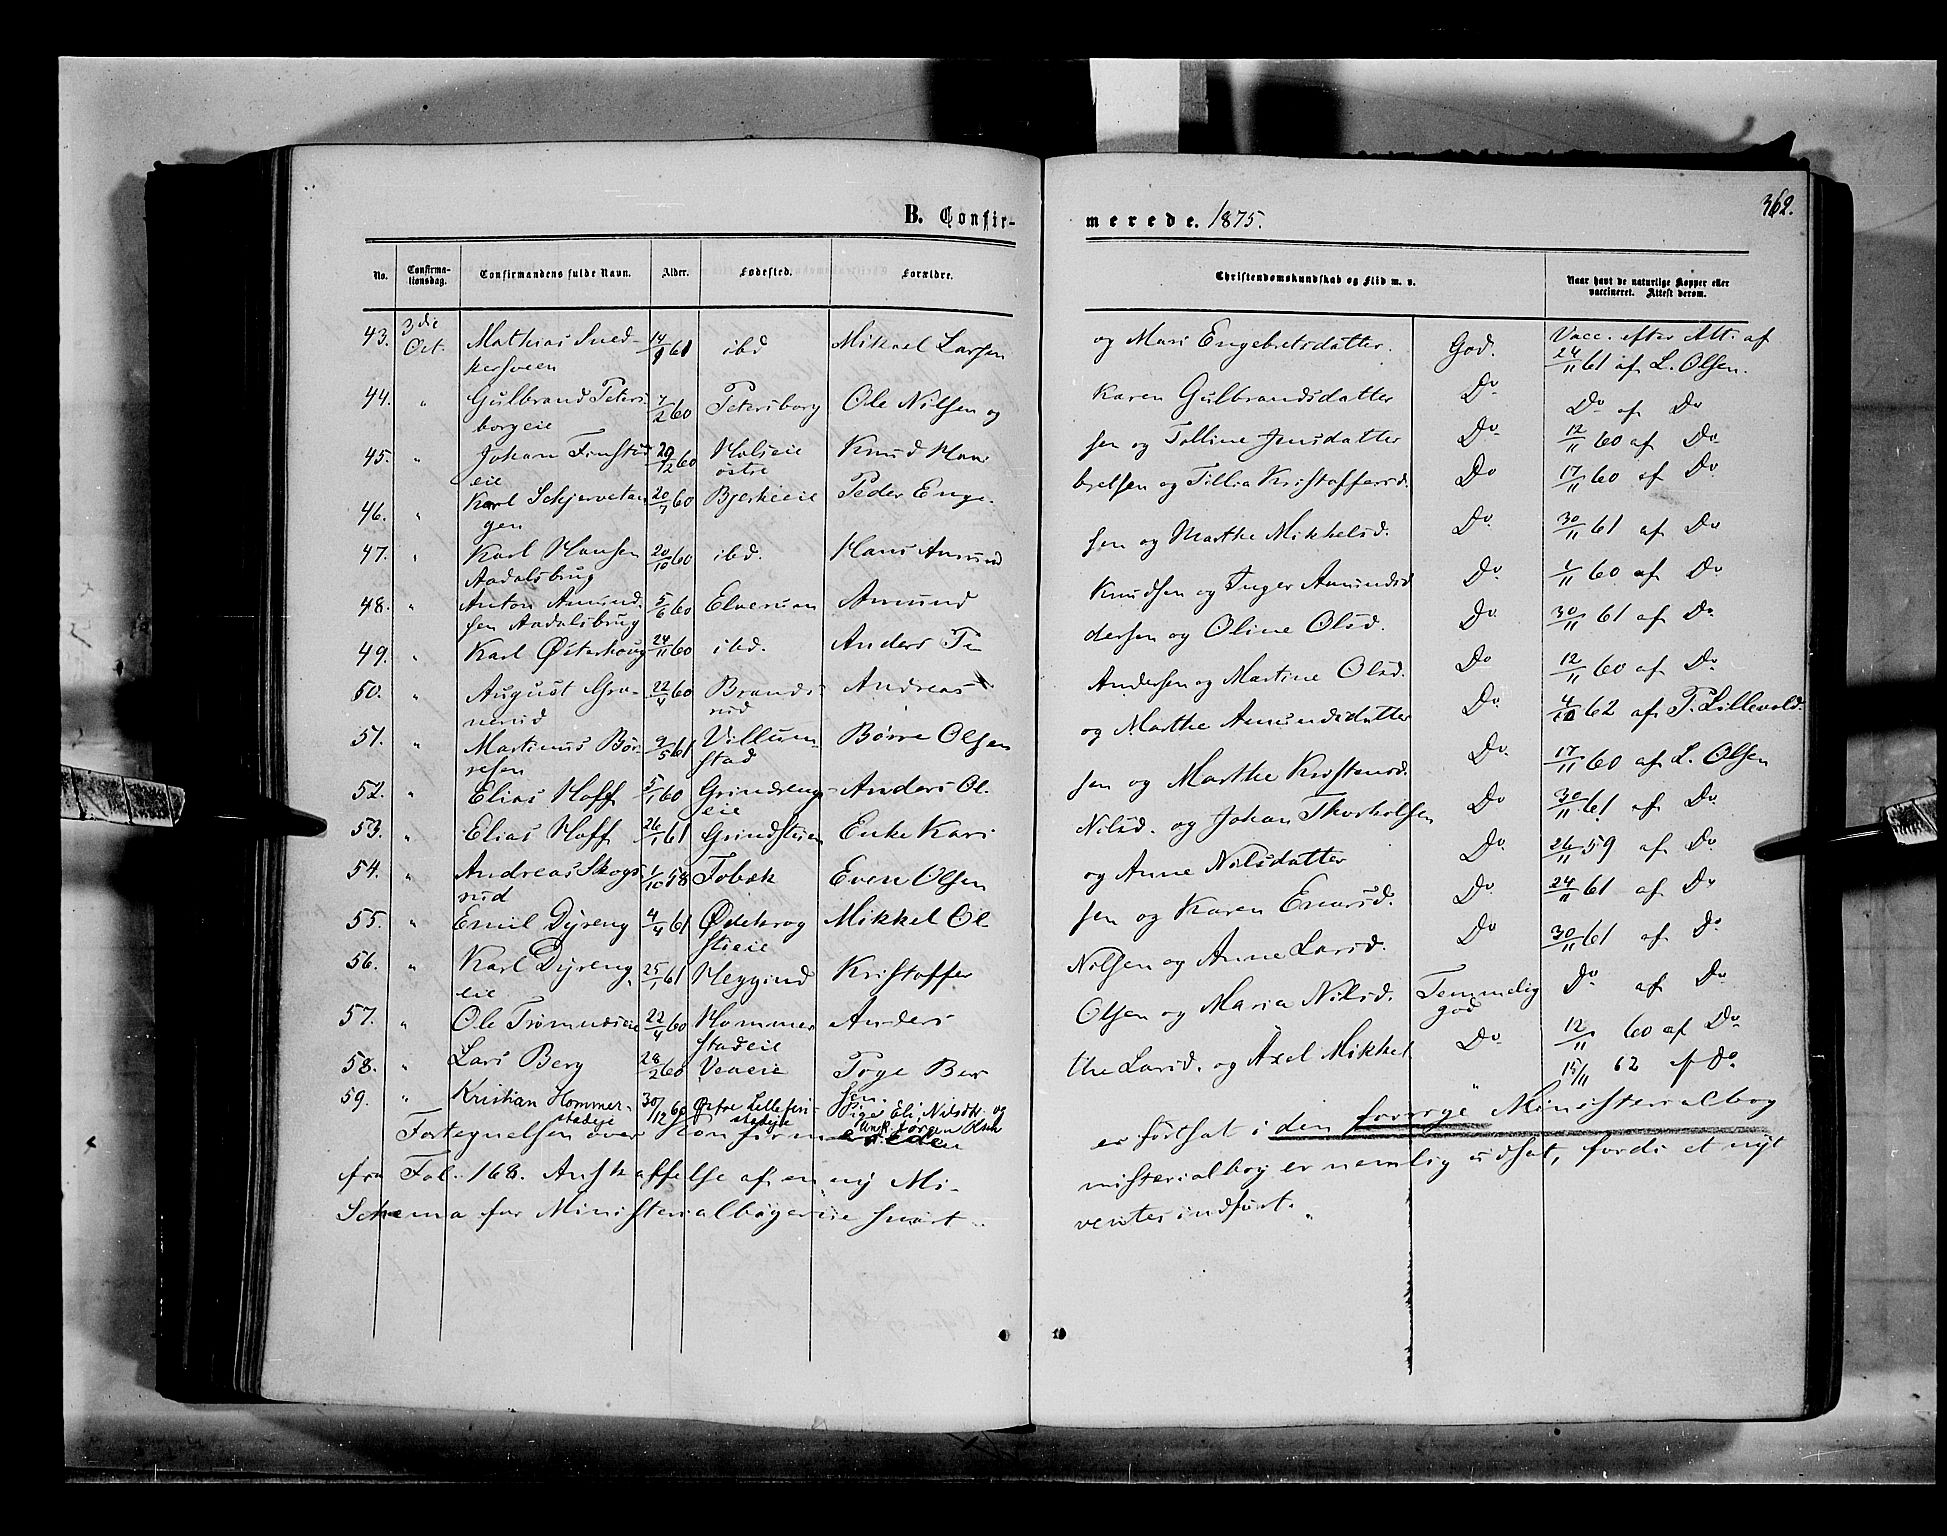 B. Confir-
merede. 1875.
362.
No.
Confirma-
tionsdag.
Confirmandens fulde Navn.
Alder.
Fødested.
Forældre.
Christendomskundskab og Flid m. v.
Naar havt de naturlige Kopper eller
vaccineret. Attest derom.
43. 3die Oct. Mathias Sned- 14/9 61 ibd Mikael Larsen og Mari Engebretsdatter. God. Vacc. efter Att. af
kersveen 24/11 61 af L. Olsen.
44. " Gulbrand Peters- 7/2 60 Petersborg Ole Nilsen og Karen Gulbrandsdatter Do Do af Do
borgeie
45. " Johan Finstad 29/12 60 Holseie Knud Han- sen og Tolline Jensdatter Do 12/11 60 af Do
eie østre
46. " Karl Schjervetan 20/7 60 Bjerkeeie Peder Enge- bretsen og Tillia Kristoffersd. Do 17/11 60 af Do
gen
47. " Karl Hansen 20/10 60 ibd. Hans Amund sen og Marthe Mikkelsd. Do 30/11 61 af Do
Aadalsbrug
48. " Anton Amund- 5/6 60 Elverum Amund Knudsen og Inger Amundsd Do 1/11 60 af Do
sen Aadalsbrug
49. " Karl Østerhaug 24/11 60 ibd. Anders dersen og Oline Olsd. Do 30/11 61 af Do
50. " August Gra- 22/4 60 Brands Andreas Andersen og Martine Olsd. Do 12/11 60 af Do
nerud rud
51. " Martinus Bør- 9/5 61 Villum- Børre Olsen og Marthe Amundsdatter Do 62 af P. Lillevold.
resen stad
52. " Elias Hoff 5/1 60 Grindreng- Anders Ol- sen og Marthe Kristensd. Do. 17/11 60 af L. Olsen
eie
53. " Elias Hoff 26/1 61 Grindstuen Enke Kari Nilsd. og Johan Thorkolsen Do 30/11 61 af Do
54. " Andreas Skogs 1/10 58 Fobæk Even Olsen og Anne Nilsdatter Do 26/11 59 af Do
rud
55. " Emil Dyreng 4/4 61 Ødekrog Mikkel Ol- sen og Karen Enarsd. Do 24/11 61 af Do
stieie
56. " Karl Dyreng 25/1 61 Heggind Kristoffer Nilsen og Anne Larsd. Do 30/11 61 af Do
eie
57. " Ole Trømmeseie 22/4 60 Hommer Anders Olsen og Maria Nilsd. Temmelig Do af Do
stadeie god
58. " Lars Berg 28/2 60 Veneie Pige Ber the Larsd. og Axel Mikkel Do 12/11 60 af Do
sen.
59. " Kristian Hommer- 30/12 60 Østre Lillefin- Pige Eli Nilsdt. og " 15/11 62 af Do
stadeie stadeje Jørgen Olsen
Fortegnelsen over Konfirmerede er fortsat i den forrige Ministerialbog
fra Fol. 168. Anskaffelse af en ny Mi- nisterialbog er nemlig udsat, fordi et nyt
Schema for Ministerialbøgerne snart ventes indført.